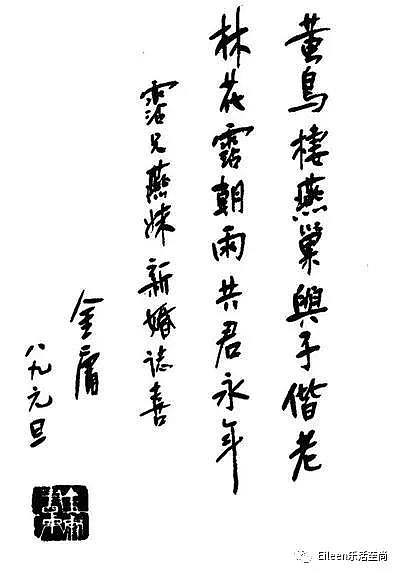 黄鳥棲燕巢與子偕老
林花霑朝雨共君永年
霑兄燕妹新婚誌喜
金庸
八九元旦
Eileen乐活荃尚